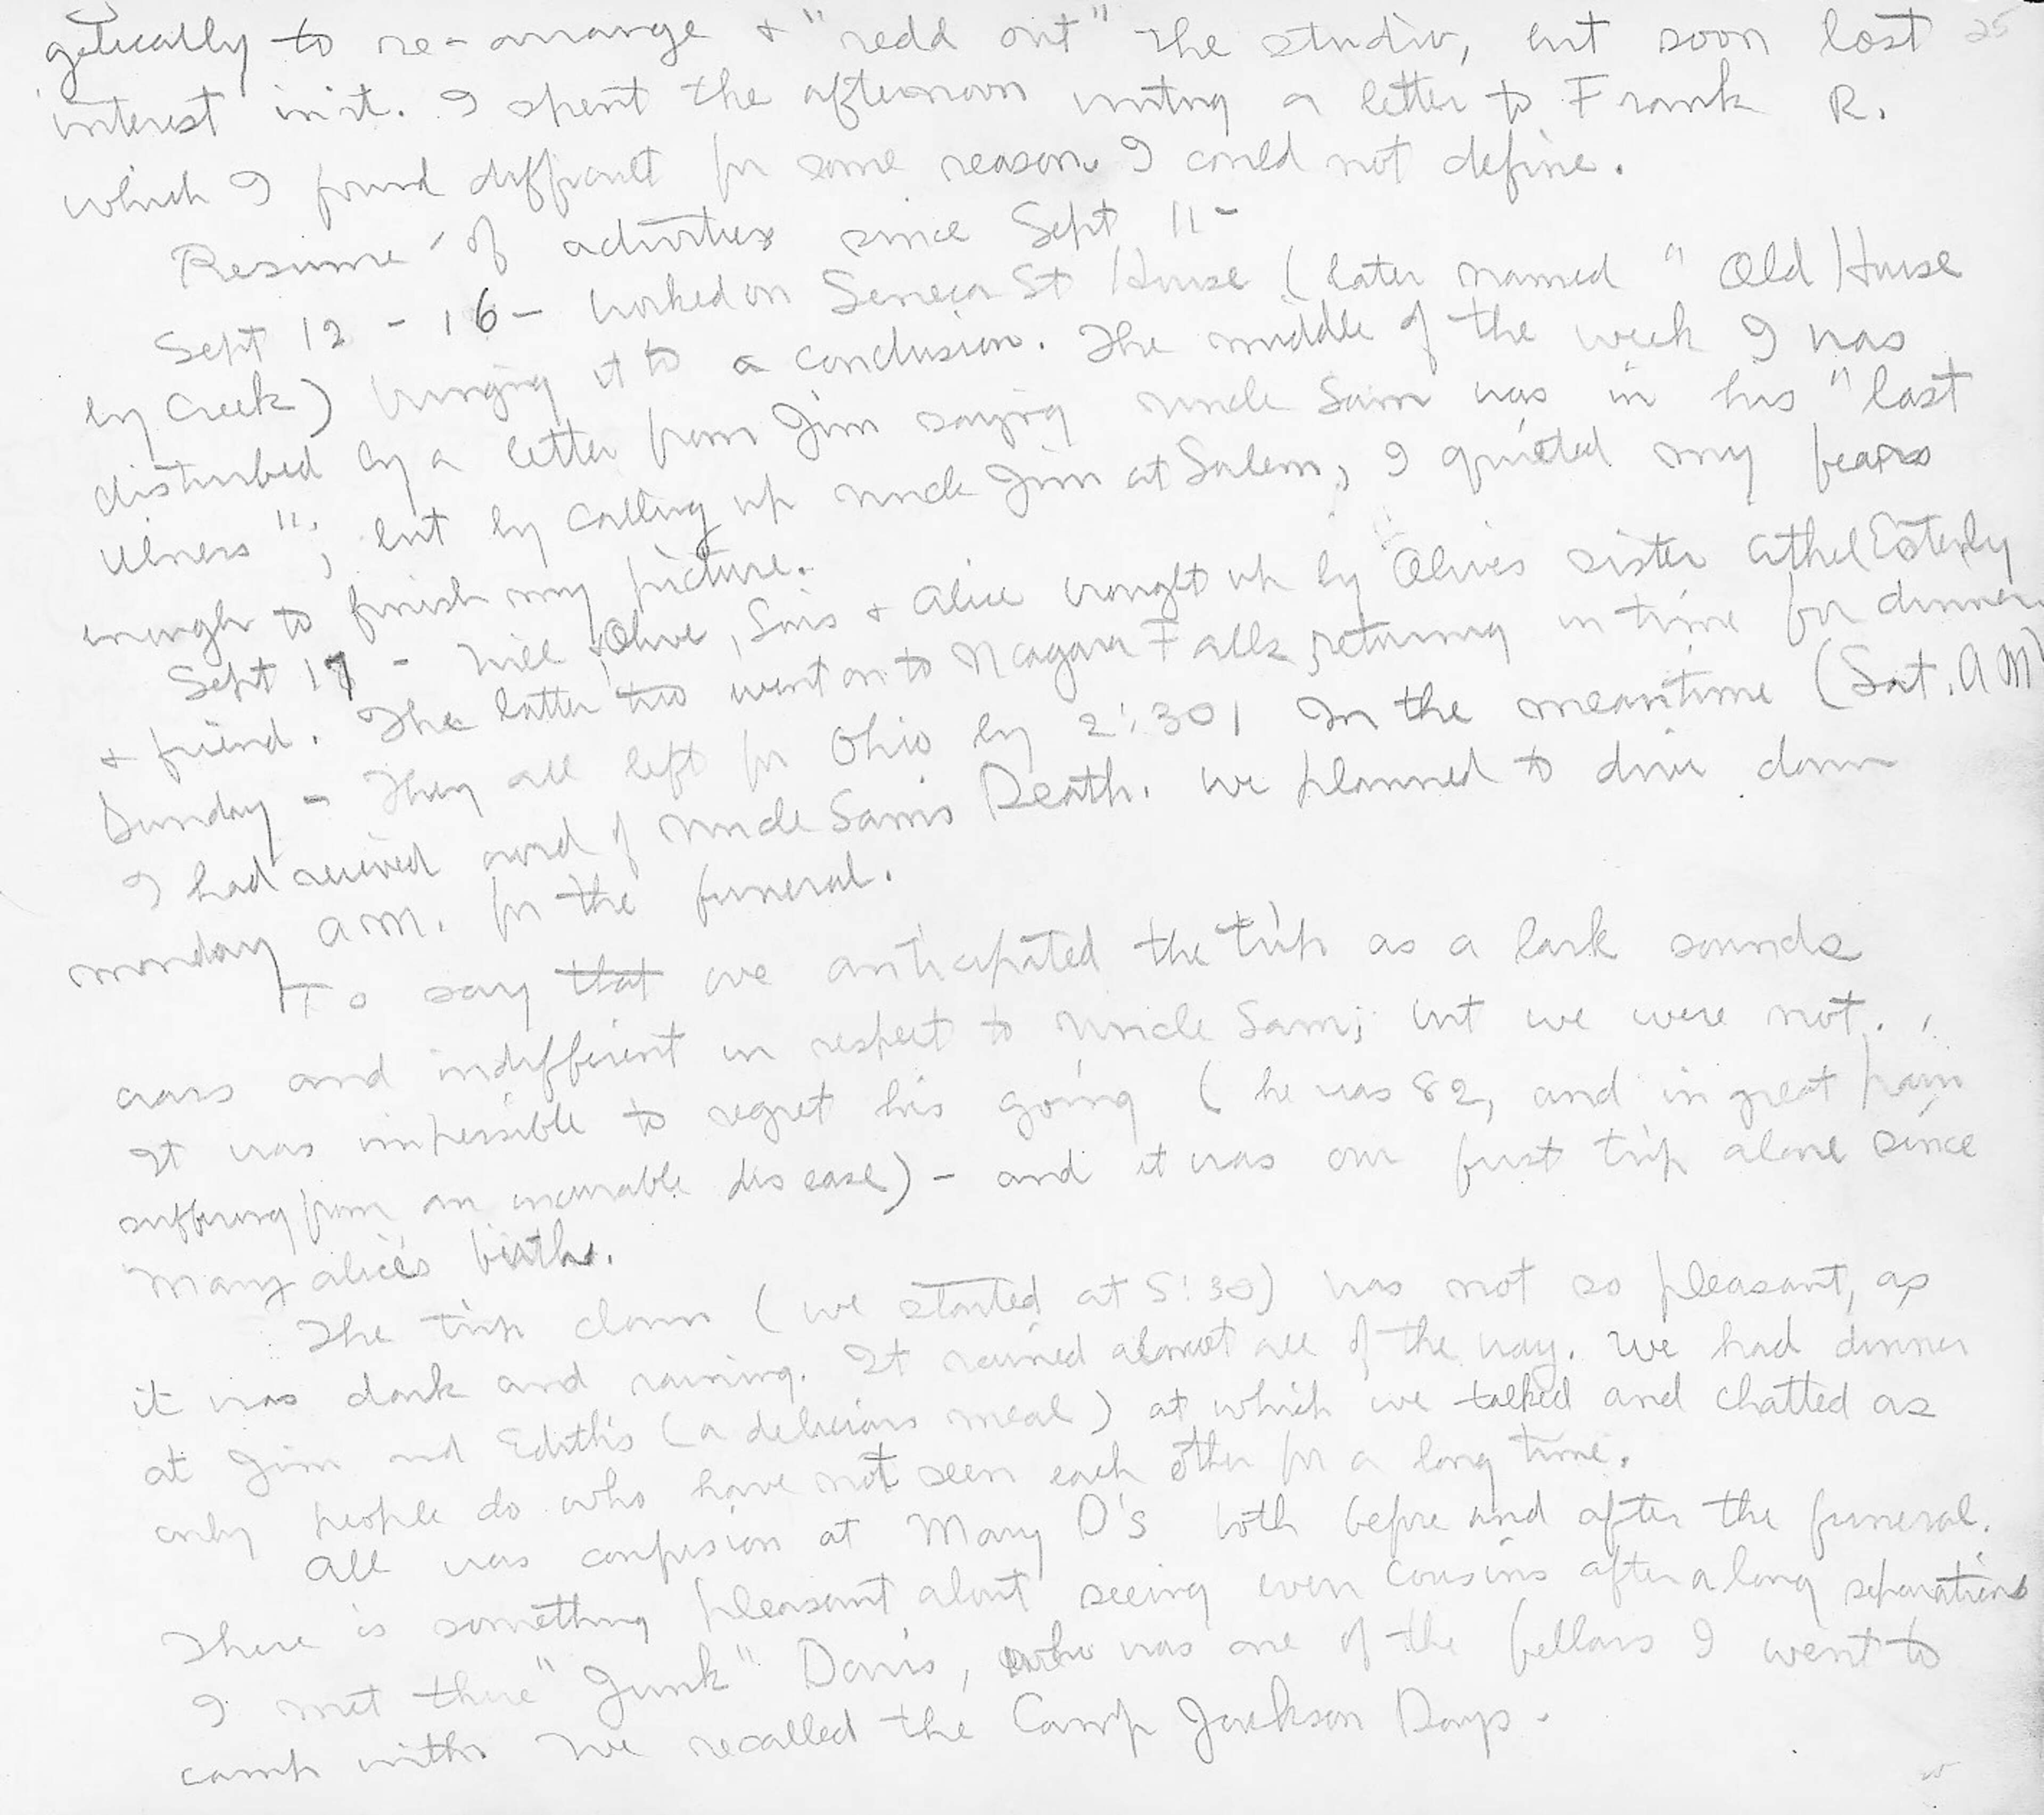 getically to re-arrange & "redd out" the studio, but soon lost 25
interest in it. I spent the afternoon writing a letter to Frank R.
which I found difficult for some reason I could not define.
Resumé of activities since Sept 11-
Sept 12 - 16 - worked on Seneca St House (later named "Old House
by Creek) bringing it to a conclusion. The middle of the week I was
disturbed by a letter from Jim saying uncle Sam was in his "last
illness", but by calling up uncle Jim at Salem, I quieted my fears
enough to finish my picture.
Sept 17 - Olive, & Alice brought up by Olive's sister Ethel Esterly
& friend. The latter two went on to Niagara Falls, returning in time for dinner
Sunday - They all left for Ohio by 2:30. In the meantime (Sat. AM)
I had received word of uncle Sam's Death. We planned to drive down
monday a.m. for the funeral.
To say that we anticipated the trip as a lark sounds
crass and indifferent in respect to uncle Sam; but we were not.
It was impossible to regret his going (he was 82, and in great pain
suffering from an incurable disease) - and it was our first trip alone since
Mary Alice's birth.
The trip down (we started at 5:30) was not so pleasant, as
it was dark and raining. It rained almost all of the way. We had dinner
at Jim and Edith's (a delicious meal) at which we talked and chatted as
only people do who have not seen each other for a long time.
All was confusion at Mary D's both before and after the funeral.
There is something pleasant about seeing even cousins after a long separation
I met there "Junk" Davis, who was one of the fellows I went to
camp with. We recalled the Camp Jackson Days.